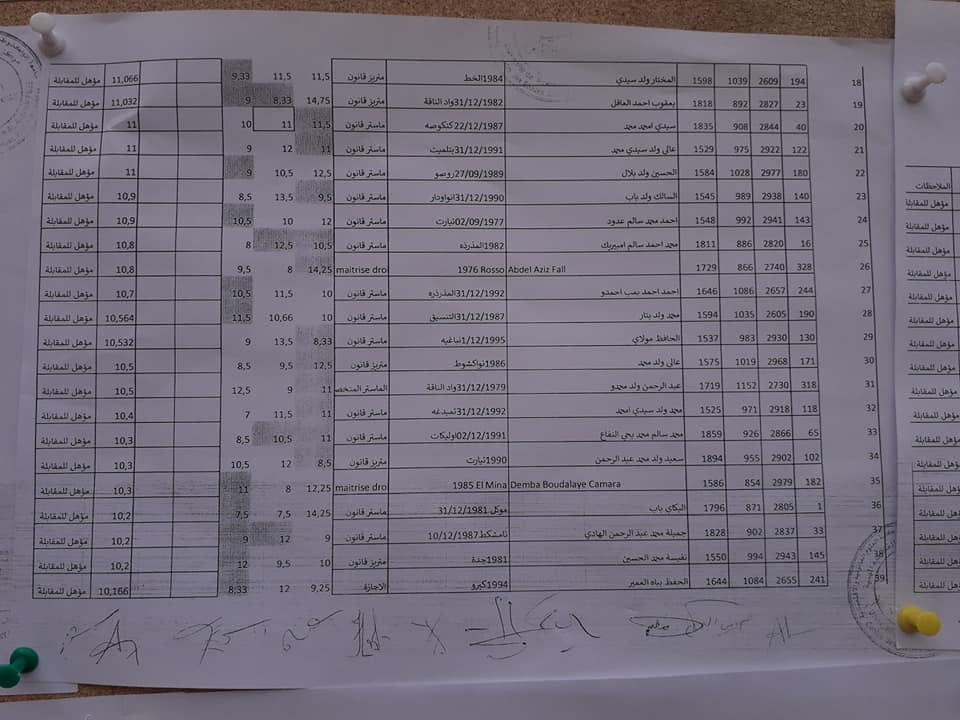 18 194 2609 1039 1598 المختار ولد سيدي 1984الخط متريز قانون 11,5 11,5 9,33 11,066 مؤهل للمقابلة
19 23 2827 892 1818 يعقوب احمد العاقل 31/12/1982واد الناقة متريز قانون 14,75 8,33 9 11,032 مؤهل للمقابلة
20 40 2844 908 1835 سيدي امحمد محمد 22/12/1987كنكوصه ماستر قانون 11,5 11 10 11 مؤهل للمقابلة
21 122 2922 975 1529 عالي ولد سيدي محمد 31/12/1991بتلميت ماستر قانون 11 12 9 11 مؤهل للمقابلة
22 180 2977 1028 1584 الحسين ولد بلال 27/09/1989روصو ماستر قانون 12,5 10,5 9 11 مؤهل للمقابلة
23 140 2938 989 1545 السالك ولد باب 31/12/1990انواودار ماستر قانون 9,5 13,5 8,5 10,9 مؤهل للمقابلة
24 143 2941 992 1548 احمد محمد سالم عدود 02/09/1977تيارت ماستر قانون 12 10 10,5 10,9 مؤهل للمقابلة
25 16 2820 886 1811 محمد احمد سالم امبيريك 1982المذرذه ماستر قانون 10,5 12,5 8 10,8 مؤهل للمقابلة
26 328 2740 866 1729 Abdel Aziz Fall 1976 Rosso maitrise dro 14,25 8 9,5 10,8 مؤهل للمقابلة
27 244 2657 1086 1646 احمد احمد بمب احمدو 31/12/1992المذرذره ماستر قانون 10 11,5 10,5 10,7 مؤهل للمقابلة
28 190 2605 1035 1594 محمد ولد بتار 31/12/1987التنسيق ماستر قانون 10 10,66 11,5 10,564 مؤهل للمقابلة
29 130 2930 983 1537 الحافظ مولاي 1/12/1995نباغيه ماستر قانون 8,33 13,5 9 10,532 مؤهل للمقابلة
30 171 2968 1019 1575 عالي ولد محمد 1986نواكشوط متريز قانون 12,5 9,5 8,5 10,5 مؤهل للمقابلة
31 318 2730 1152 1719 عبد الرحمن ولد محمدو 31/12/1979واد الناقة الماستر المتخصص 11 9 12,5 10,5 مؤهل للمقابلة
32 118 2918 971 1525 محمد ولد سيدي امحمد 31/12/1992تمبدغه ماستر قانون 11 11,5 7 10,4 مؤهل للمقابلة
33 65 2866 926 1859 محمد سالم محمد يحي النفاع 02/12/1991اوليكات ماستر قانون 11 10,5 8,5 10,3 مؤهل للمقابلة
34 102 2902 955 1894 سعيد ولد محمد عبد الرحمن 1990تيارت متريز قانون 8,5 12 10,5 10,3 مؤهل للمقابلة
35 182 2979 854 1586 Demba Boudalaye Camara 1985 El Mina maitrise dro 12,25 8 11 10,3 مؤهل للمقابلة
36 1 2805 871 1796 البكاي باب 31/12/1981 ماستر قانون 14,25 7,5 7,5 10,2 مؤهل للمقابلة
37 33 2837 902 1828 جميلة محمد عبد الرحمن الهادي 10/12/1987تامشكط ماستر قانون 9 12 9 10,2 مؤهل للمقابلة
38 145 2943 994 1550 نفيسة محمد الحسين 1981جدة متريز قانون 10 9,5 12 10,2 مؤهل للمقابلة
39 241 2655 1084 1644 الحفظ بباه العمير 1994كيرو الاجازة 9,25 12 8,33 10,166 مؤهل للمقابلة
الملاحظات
مؤهل للمقابلة
مؤهل للمقابلة
مؤهل للمقابلة
مؤهل للمقابلة
مؤهل للمقابلة
مؤهل للمقابلة
مؤهل للمقابلة
مؤهل للمقابلة
مؤهل للمقابلة
مؤهل للمقابلة
مؤهل للمقابلة
مؤهل للمقابلة
مؤهل للمقابلة
مؤهل للمقابلة
مؤهل للمقابلة
مؤهل للمقابلة
مؤهل للمقابلة